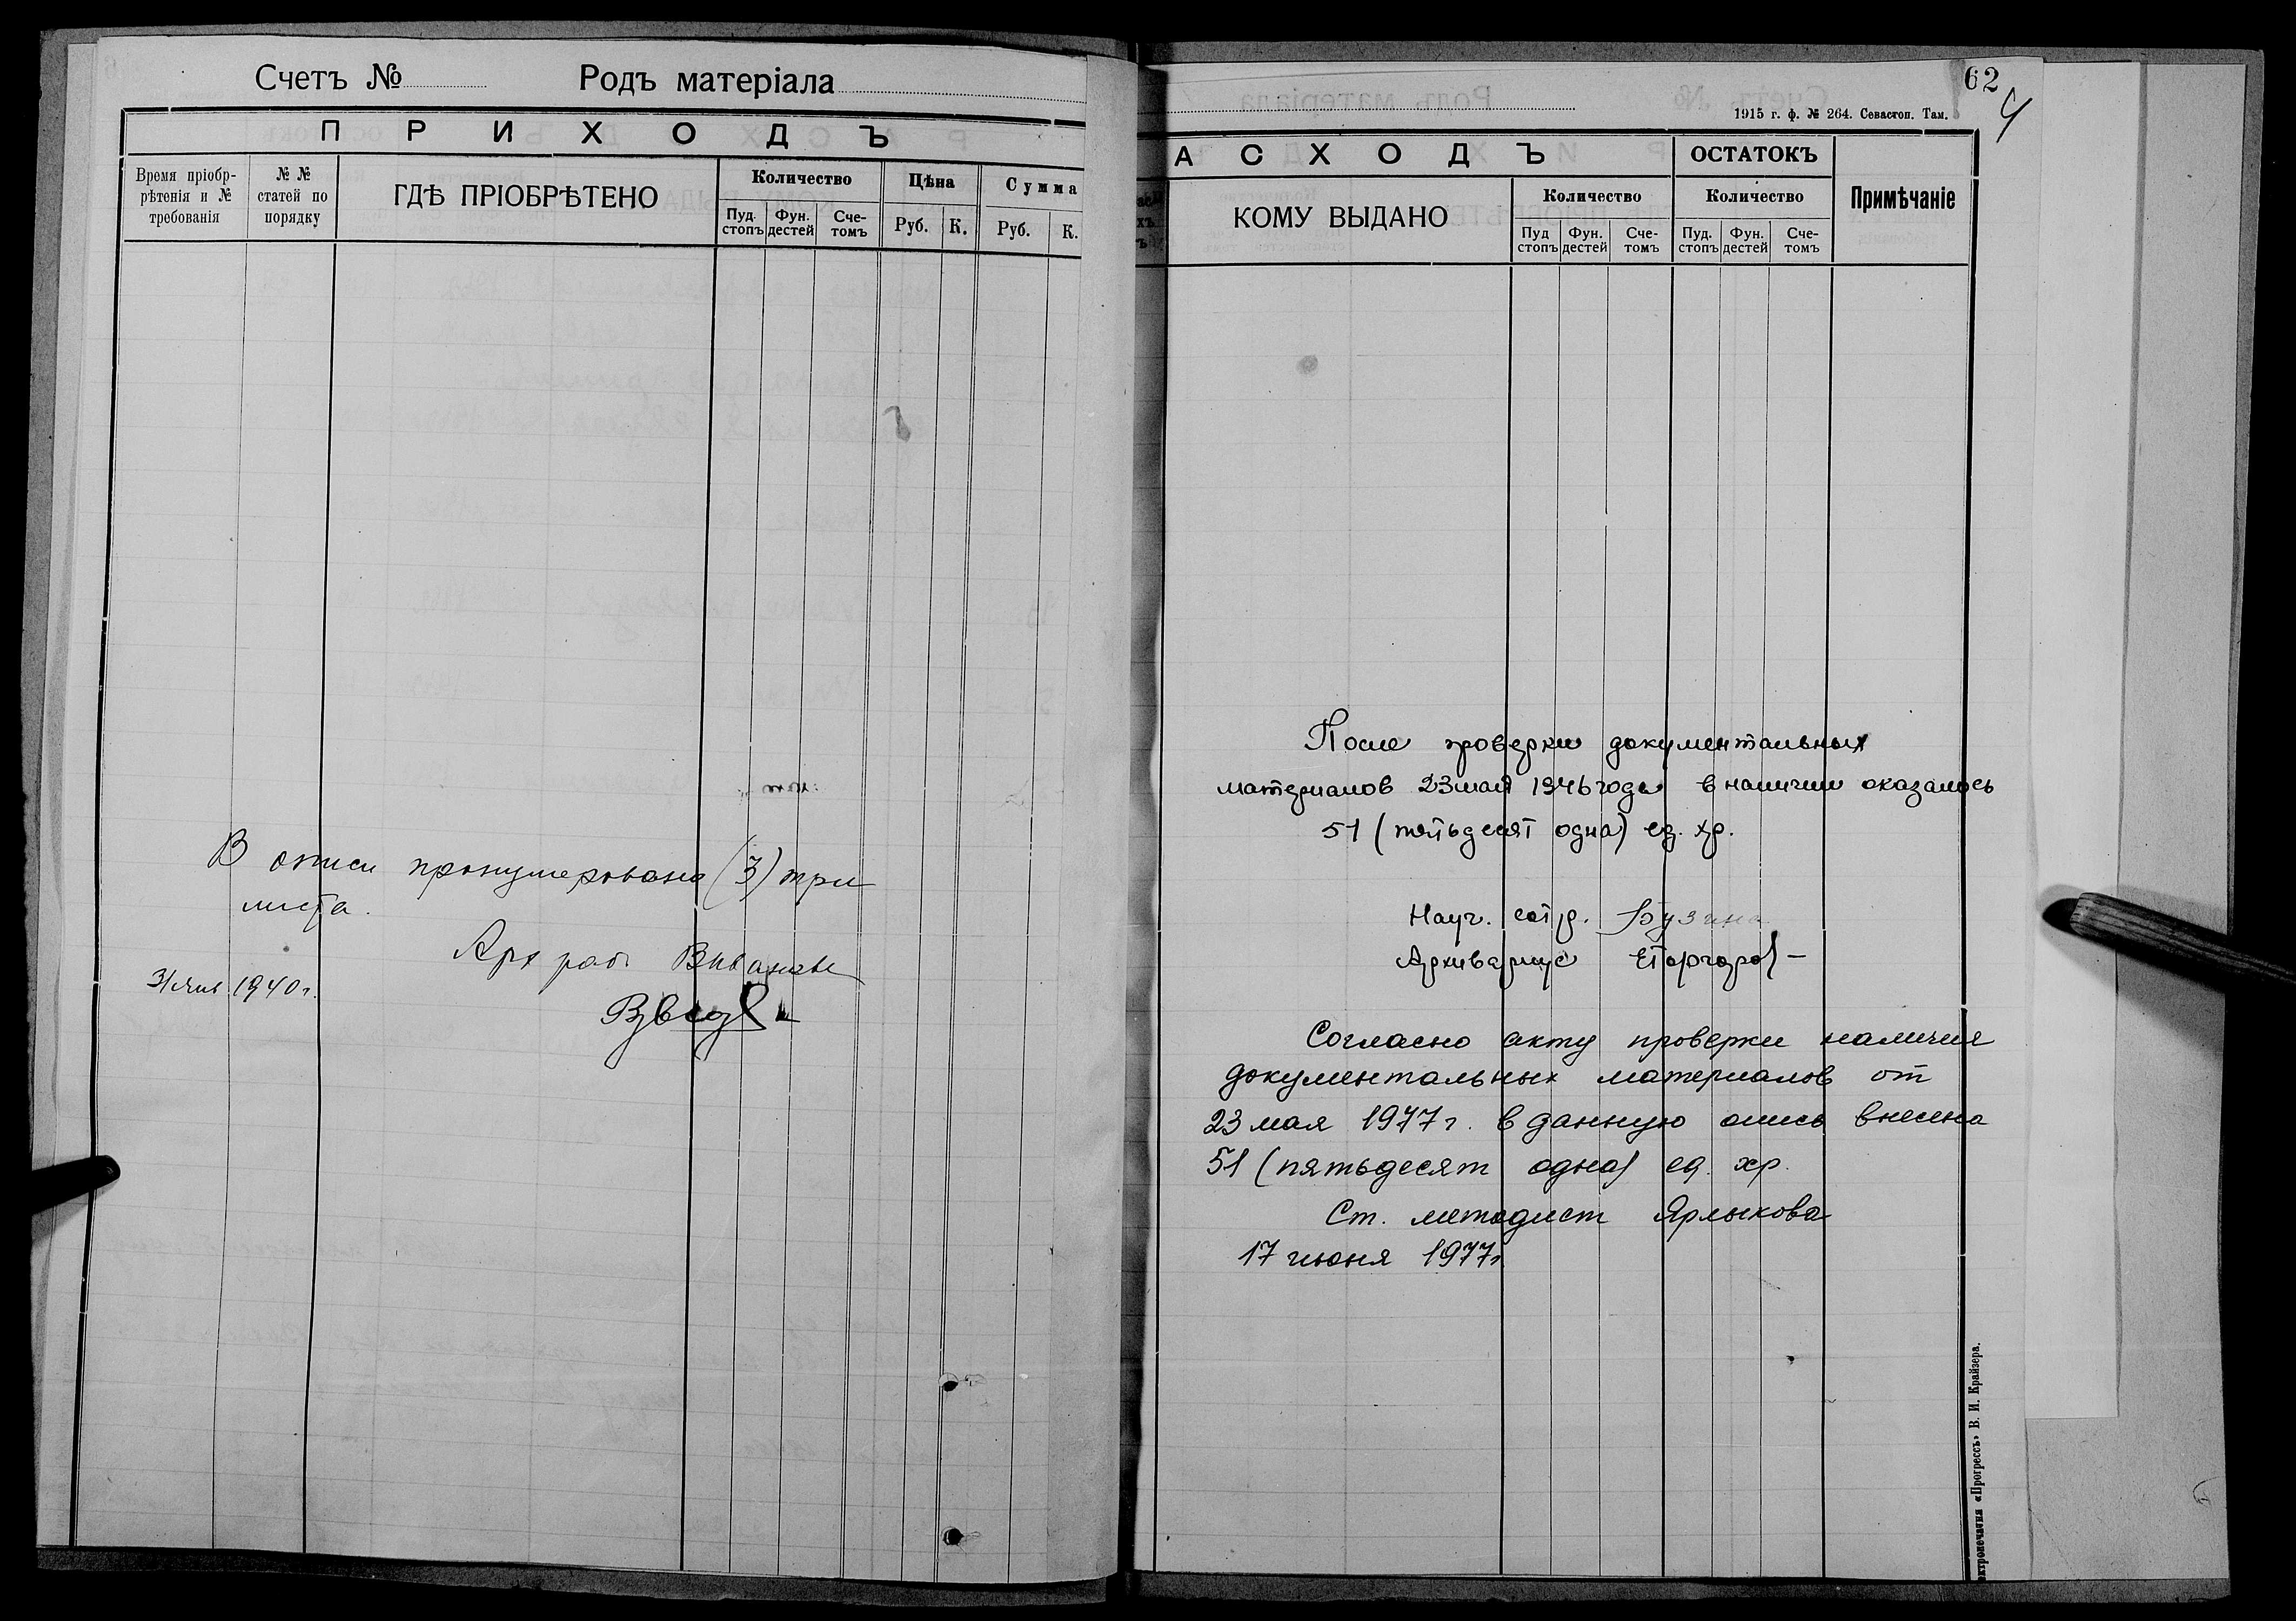 Счетъ № Родъ матеріала
ПРИХОДЪ
Время пріобр-
рѣтенія и №
требованія
№ №
статей по
порядку
ГДѢ ПРІОБРѢТЕНО
Количество
Пуд.
стопъ
Фун.
дестей
Сче-
томъ
Цѣна
Руб.
К.
Сумма
Руб.
К.
В описи пронумеровано (3) три
листа.
Арх раб.
31 янв 1940 г.
62
4
1915 г. ф. № 264. Севастоп. Там.
АСХОДЪ
КОМУ ВЫДАНО
Количество
Пуд
стопъ
Фун.
дестей
Сче-
томъ
ОСТАТОКЪ
Количество
Пуд.
стопъ
Фун.
дестей
Сче-
томъ
Примѣчаніе
После проверки документальных
материалов 23 мая 1946 года в наличии оказалось
51 (пятьдесят одна) ед. хр.
Науч. сотр. Бузина
Архивариус
Согласно акту проверки наличия
документальных материалов от
23 мая 1977 г. в данную опись внесена
51 (пятьдесят одна) ед. хр.
Ст. методист Ярлыкова
17 июня 1977г
ектропечатня «Прогрессъ» В. И. Крайзера.